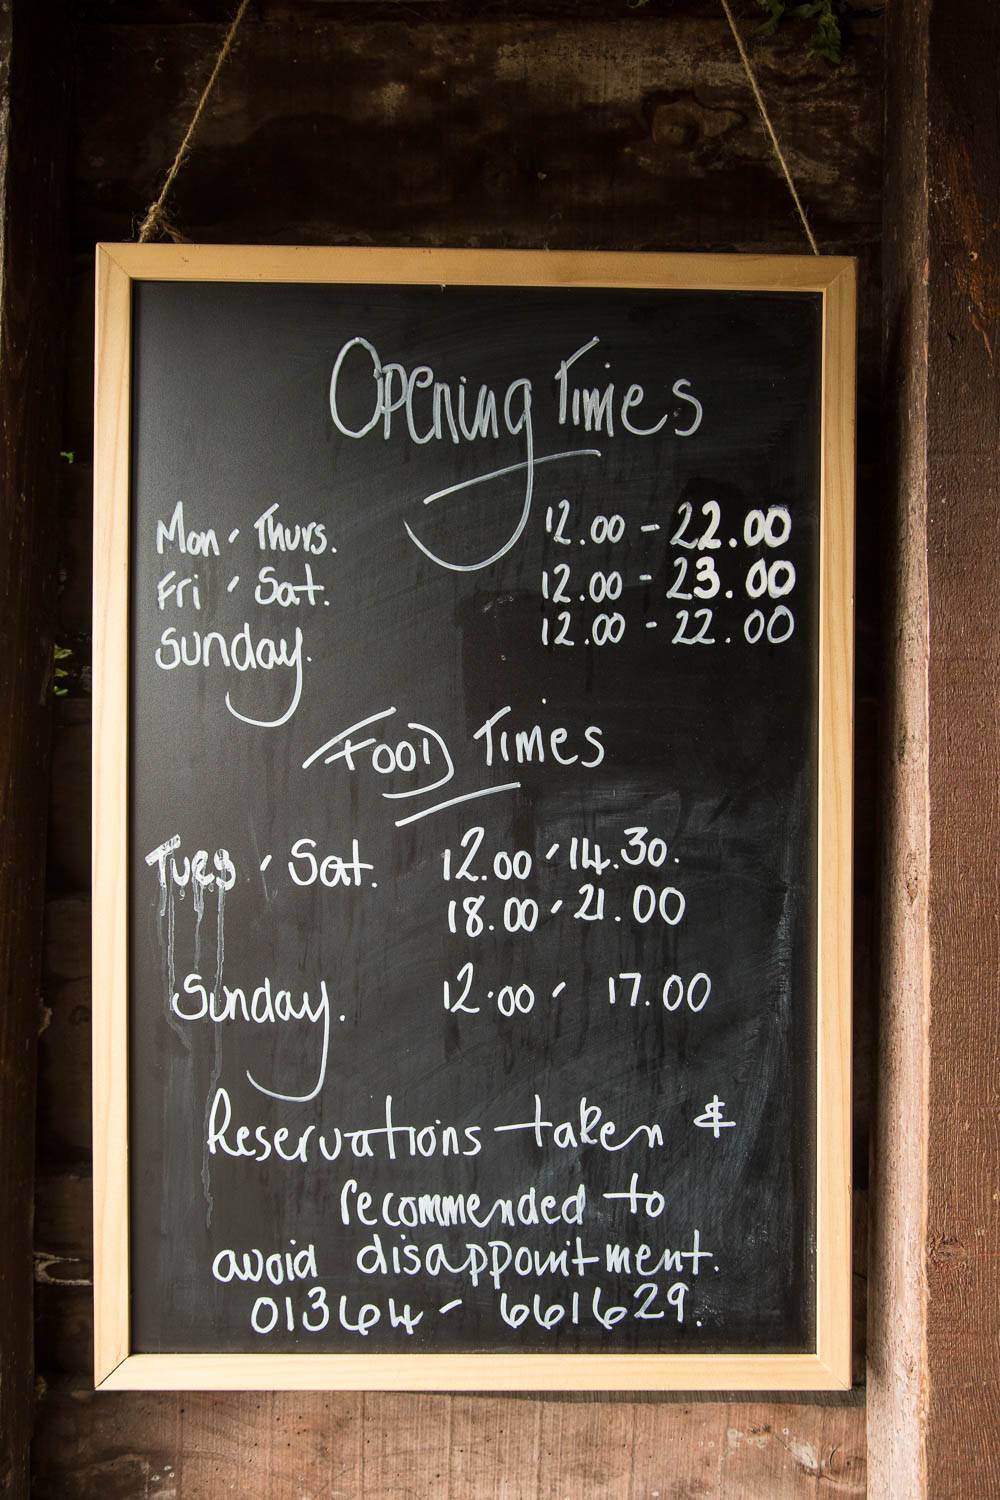 Opening Times
Mon - Thurs. 12.00 - 22.00
Fri - Sat. 12.00 - 23.00
Sunday. 12.00 - 22.00
Food Times
Tues - Sat. 12.00 - 14.30.
18.00 - 21.00
Sunday. 12.00 - 17.00
Reservations taken &
recommended to
avoid disappointment.
01364 - 661629.